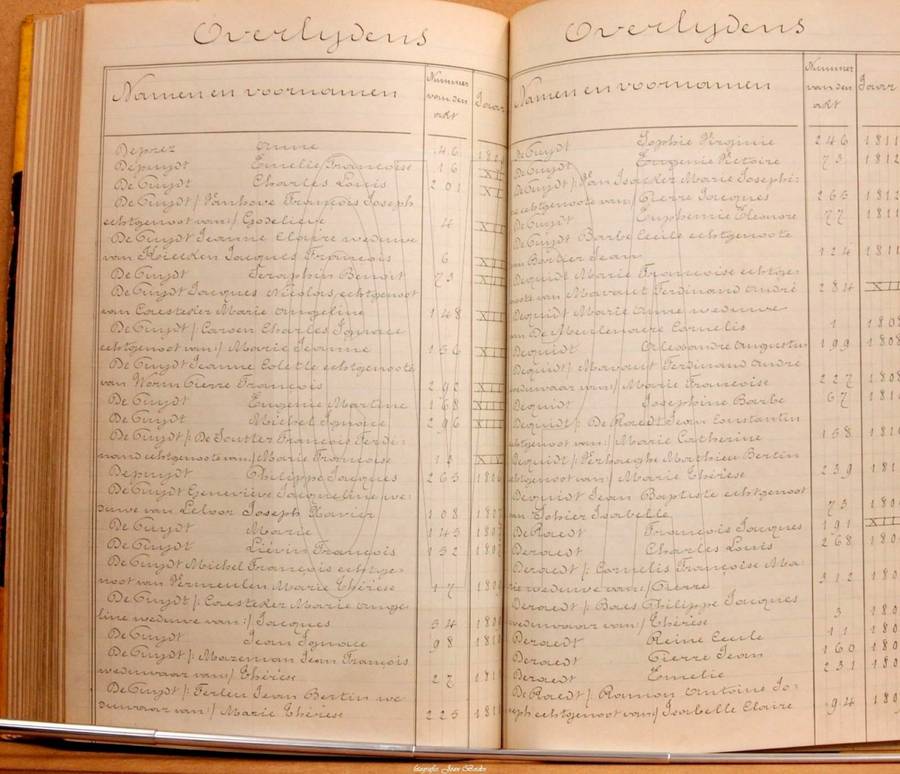 Overlydens
Namen en voornamen
Nummer van den akt
Jaar
Deprez Anne 46
Depuydt Emelie Françoise 16 XI
De Puydt Charles Louis 201 XI
De Puydt /: Vanhove François Joseph
echtgenoot van :/ Godelieve 4 XII
De Puydt Jeanne Claire weduwe
van Jacques François 6 XII
De Puydt Seraphin Benoit 73 XII
De Puydt Jacques Nicolas echtgenoot
van Coestecker Marie Angeline 148 XII
De Puydt /: Carven Charles Ignace
echtgenoot van :/ Marie Jeanne 156
De Puydt Jeanne Colette echtgenote
van Norm Pierre François 292
De Puydt Eugenie Martine 168
De Puydt Michel Ignace 296
De Puydt /: De Soutter François Ferdi-
nand echtgenoot van :/ Marie Françoise
Depuydt Philippe Jacques 263
De Puydt Geneviève Jacqueline we-
duwe van Leloor Joseph Xavier 108
De Puydt Marie 143
De Puydt Liévin François 152
De Puydt Michel François echtge-
noot van Vermeulen Marie Thérèse 17
De Puydt /: Coestecker Marie Ange-
line weduwe van :/ Jacques 54
De Puydt Jean Ignace 98
De Puydt /: Mazeman Jean François
weduwaar van :/ Thérèse 27
De Puydt /: Ferleu Jean Bertin we-
duwaar van :/ Marie Thérèse 225
Overlydens
Namen en voornamen
Nummer van den akt
Jaar
De Puydt Sophie Virginie 246 1811
De Puydt Eugenie Victoire 73 1812
De Puydt /: Van Isacker Marie Josephi-
ne echtgenote van :/ Pierre Jacques 265 1812
De Puydt Euphemie Eleonore 77 1811
De Puydt Barbe Cecile echtgenote
van Bortier Jean 124
Dequidt Marie Françoise echtge-
note van Mavaut Ferdinand André 284 XII
Dequidt Marie Anne weduwe
van De Meulenaere Cornelis 1 1808
Dequidt Alexandre Augustin 199 1808
Dequidt /: Mavaut Ferdinand André
weduwaar van :/ Marie Françoise 227 1808
Dequidt Josephine Barbe 67
Dequidt /: De Raedt Jean Constantin
echtgenoot van :/ Marie Catherine 158
Dequidt /: Verhaeghe Mathieu Bertin
echtgenoot van :/ Marie Thérèse 239
Dequidt Jean Baptiste echtgenoot
van Isabelle 73
De Raedt François Jacques 191 XII
Deraedt Charles Louis 268
Deraedt /: Cornelis Françoise Ma-
rie weduwe van :/ Pierre 312
Deraedt /: Baes Philippe Jacques
weduwaar van :/ Thérèse 3
Deraedt Reine Cecile 11
Deraedt Pierre Jean 160
Deraedt Emelie 231
De Raedt /: Ramon Antoine Jo-
seph echtgenoot van :/ Isabelle Claire 94